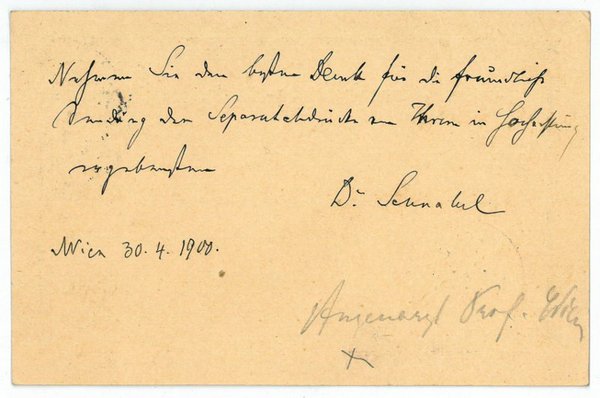 Nehmen Sie den besten Dank für die freundliche
Sendung der Separatabdrücke von Ihrem in Hochachtung
ergebensten
Dr Schnabel
Wien 30.4.1900.
Augenarzt Prof. Wien